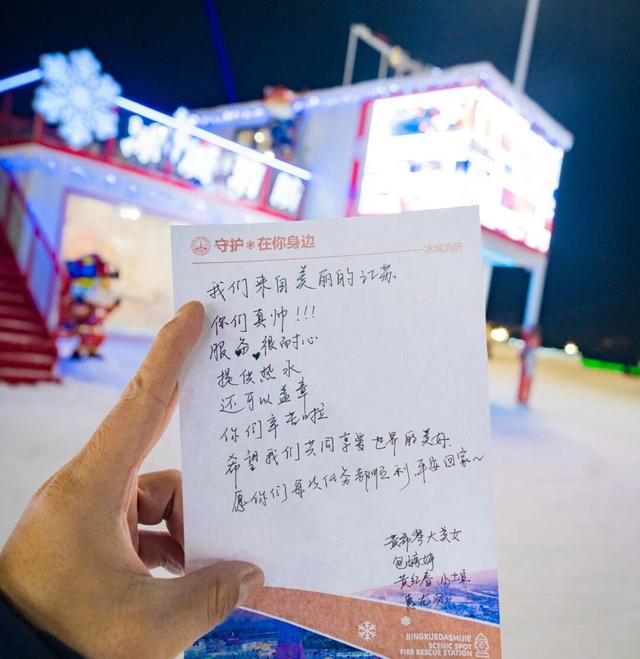 守护 在你身边
冰城消防
我们来自美丽的江苏
你们真帅!!!
服务很耐心
提供热水
还可以盖章
你们辛苦啦
希望我们共同享受世界的美好
愿你们每次任务都顺利平安回家~
大美女
BINGXUEDASHIJIE
SCENIC SPOT
FIRE RESCUE STATION